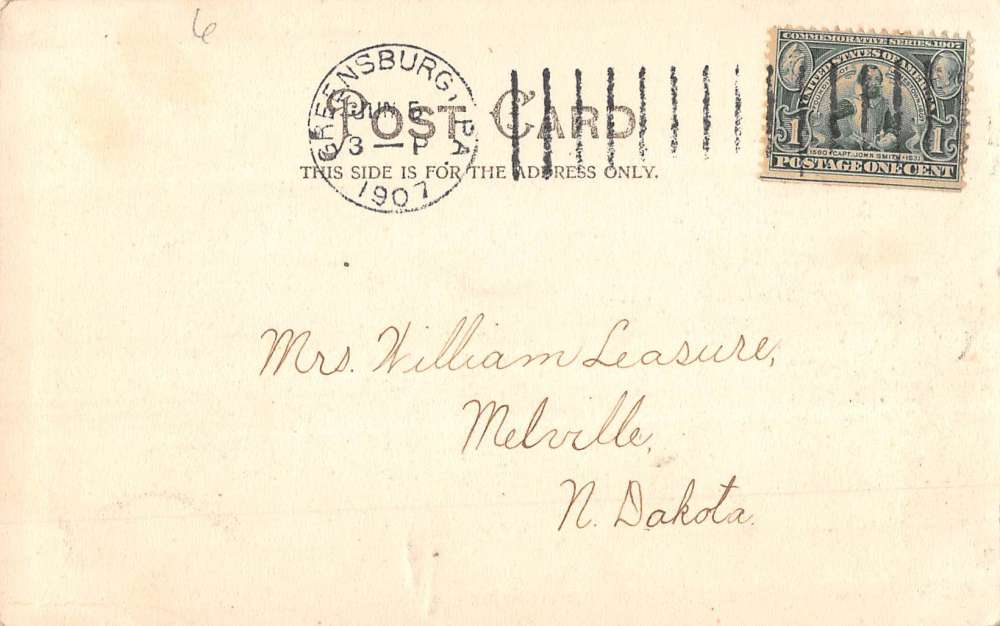 6
GREENSBURG, PA.
JUN 5
3 — P
1907
POST CARD
THIS SIDE IS FOR THE ADDRESS ONLY.
COMMEMORATIVE SERIES 1907
UNITED STATES OF AMERICA
1580 • CAPT. JOHN SMITH • 1631
1 1
POSTAGE ONE CENT
Mrs. William Leasure,
Melville,
N. Dakota.